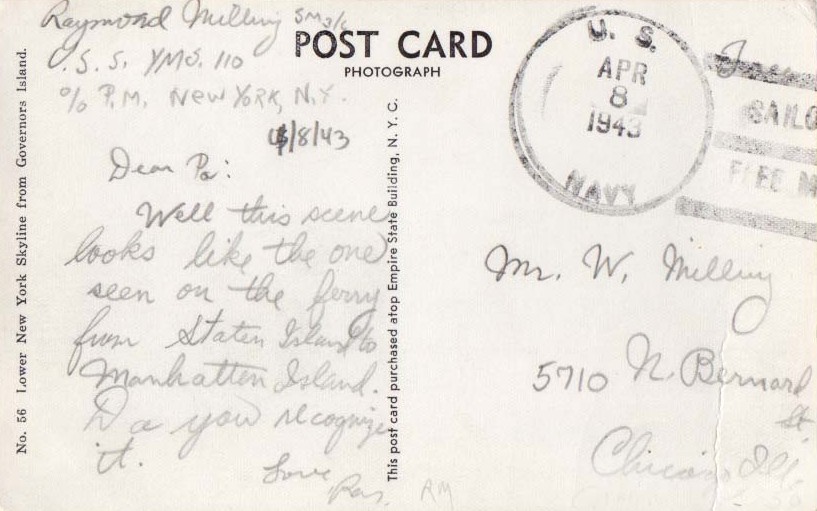 Raymond Milling SM3/c
U.S.S. YMS. 110
c/o P.M. New York, N.Y.
4/8/43
Dear Pa:
Well this scene
looks like the one
seen on the ferry
from Staten Island to
Manhattan Island.
Do you recognize
it.
Love
Ray.
RM
No. 56 Lower New York Skyline from Governors Island.
POST CARD
PHOTOGRAPH
This post card purchased atop Empire State Building, N. Y. C.
U. S.
APR
8
1943
NAVY
SAILO
FREE M
Mr. W. Milling
5710 N. Bernard
St.
Chicago Ill.